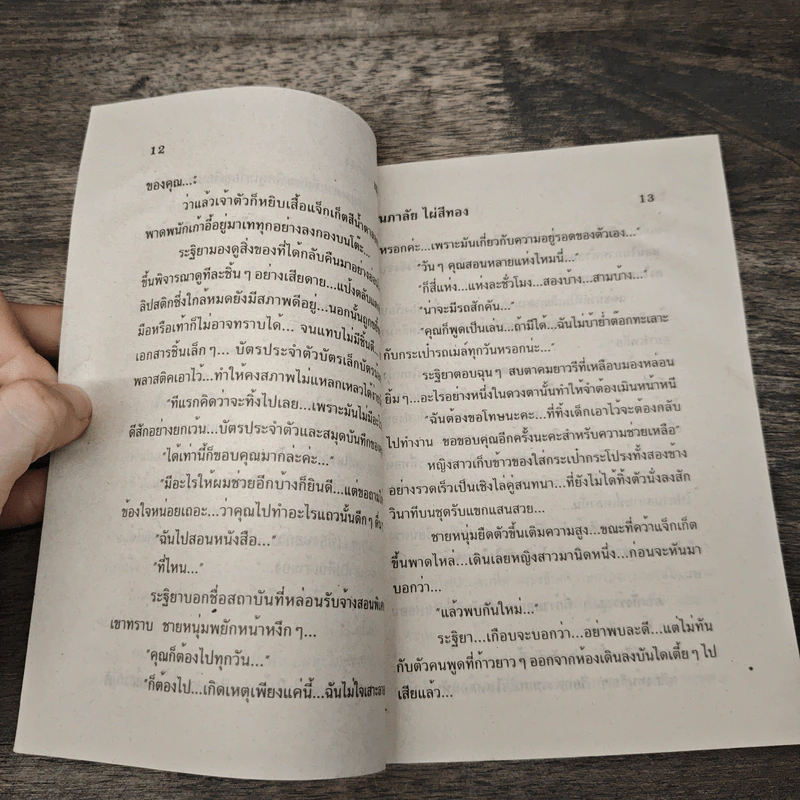 12
ของคุณ...”
ว่าแล้วเจ้าตัวก็หยิบเสื้อแจ็กเก็ตสีน้ำตาล
พาดพนักเก้าอี้อยู่มาเททุกอย่างลงกองบนโต๊ะ...
ระฐิยามองดูสิ่งของที่ได้กลับคืนมาอย่าง
ขึ้นพิจารณาดูทีละชิ้นๆ อย่างเสียดาย...แป้งตลับ
ลิปสติกซึ่งใกล้หมดยังมีสภาพดีอยู่...นอกนั้นถูก
มือหรือเท้าก็ไม่อาจทราบได้... จนแทบไม่มีชิ้นดี
เอกสารชิ้นเล็กๆ... บัตรประจำตัวบัตรเล็กบัตร
พลาสติคเอาไว้...ทำให้คงสภาพไม่แหลกเหลวได้
“ทีแรกคิดว่าจะทิ้งไปเลย...เพราะมันไม่มี
ดีสักอย่างยกเว้น...บัตรประจำตัวและสมุดบันทึกของ
“ได้เท่านี้ก็ขอบคุณมากล่ะค่ะ...”
“มีอะไรให้ผมช่วยอีกบ้างก็ยินดี...แต่ขอถาม
ข้องใจหน่อยเถอะ...ว่าคุณไปทำอะไรแถวนั้นดึกๆ
“ฉันไปสอนหนังสือ...”
“ที่ไหน...”
ระฐิยาบอกชื่อสถาบันที่หล่อนรับจ้างสอน
เขาทราบ ชายหนุ่มพยักหน้าหงึกๆ...
“คุณก็ต้องไปทุกวัน...”
“ก็ต้องไป...เกิดเหตุเพียงแค่นี้...ฉันไม่ใจเสาะ
นภาลัย ไผ่สีทอง
13
หรอกค่ะ...เพราะมันเกี่ยวกับความอยู่รอดของตัวเอง...”
“วันๆ คุณสอนหลายแห่งไหมนี่...”
“ก็สี่แห่ง...แห่งละชั่วโมง...สองบ้าง...สามบ้าง...”
“น่าจะมีรถสักคัน...”
“คุณก็พูดเป็นเล่น...ถ้ามีได้...ฉันไม่บ้าย่ำต๊อกทะเลาะ
กับกระเป๋ารถเมล์ทุกวันหรอกน่ะ...”
ระฐิยาตอบฉุนๆ สบตาคมยาวรีที่เหลือบมองหล่อน
ยิ้มๆ...อะไรอย่างหนึ่งในดวงตานั้นทำให้จำต้องเมินหน้าหนี
“ฉันต้องขอโทษนะคะ...ที่ทิ้งเด็กเอาไว้จะต้องกลับ
ไปทำงาน ขอขอบคุณอีกครั้งนะคะสำหรับความช่วยเหลือ”
หญิงสาวเก็บข้าวของใส่กระเป๋ากระโปรงทั้งสองข้าง
อย่างรวดเร็วเป็นเชิงไล่คู่สนทนา...ที่ยังไม่ได้ทิ้งตัวนั่งลงสัก
วินาทีบนชุดรับแขกแสนสวย...
ชายหนุ่มยืดตัวขึ้นเต็มความสูง...ขณะที่คว้าแจ็กเก็ต
ขึ้นพาดไหล่...เดินเลยหญิงสาวมานิดหนึ่ง...ก่อนจะหันมา
บอกว่า...
“แล้วพบกันใหม่...”
ระฐิยา...เกือบจะบอกว่า...อย่าพบละดี...แต่ไม่ทัน
กับตัวคนพูดที่ก้าวยาวๆ ออกจากห้องเดินลงบันไดเตี้ยๆ ไป
เสียแล้ว...